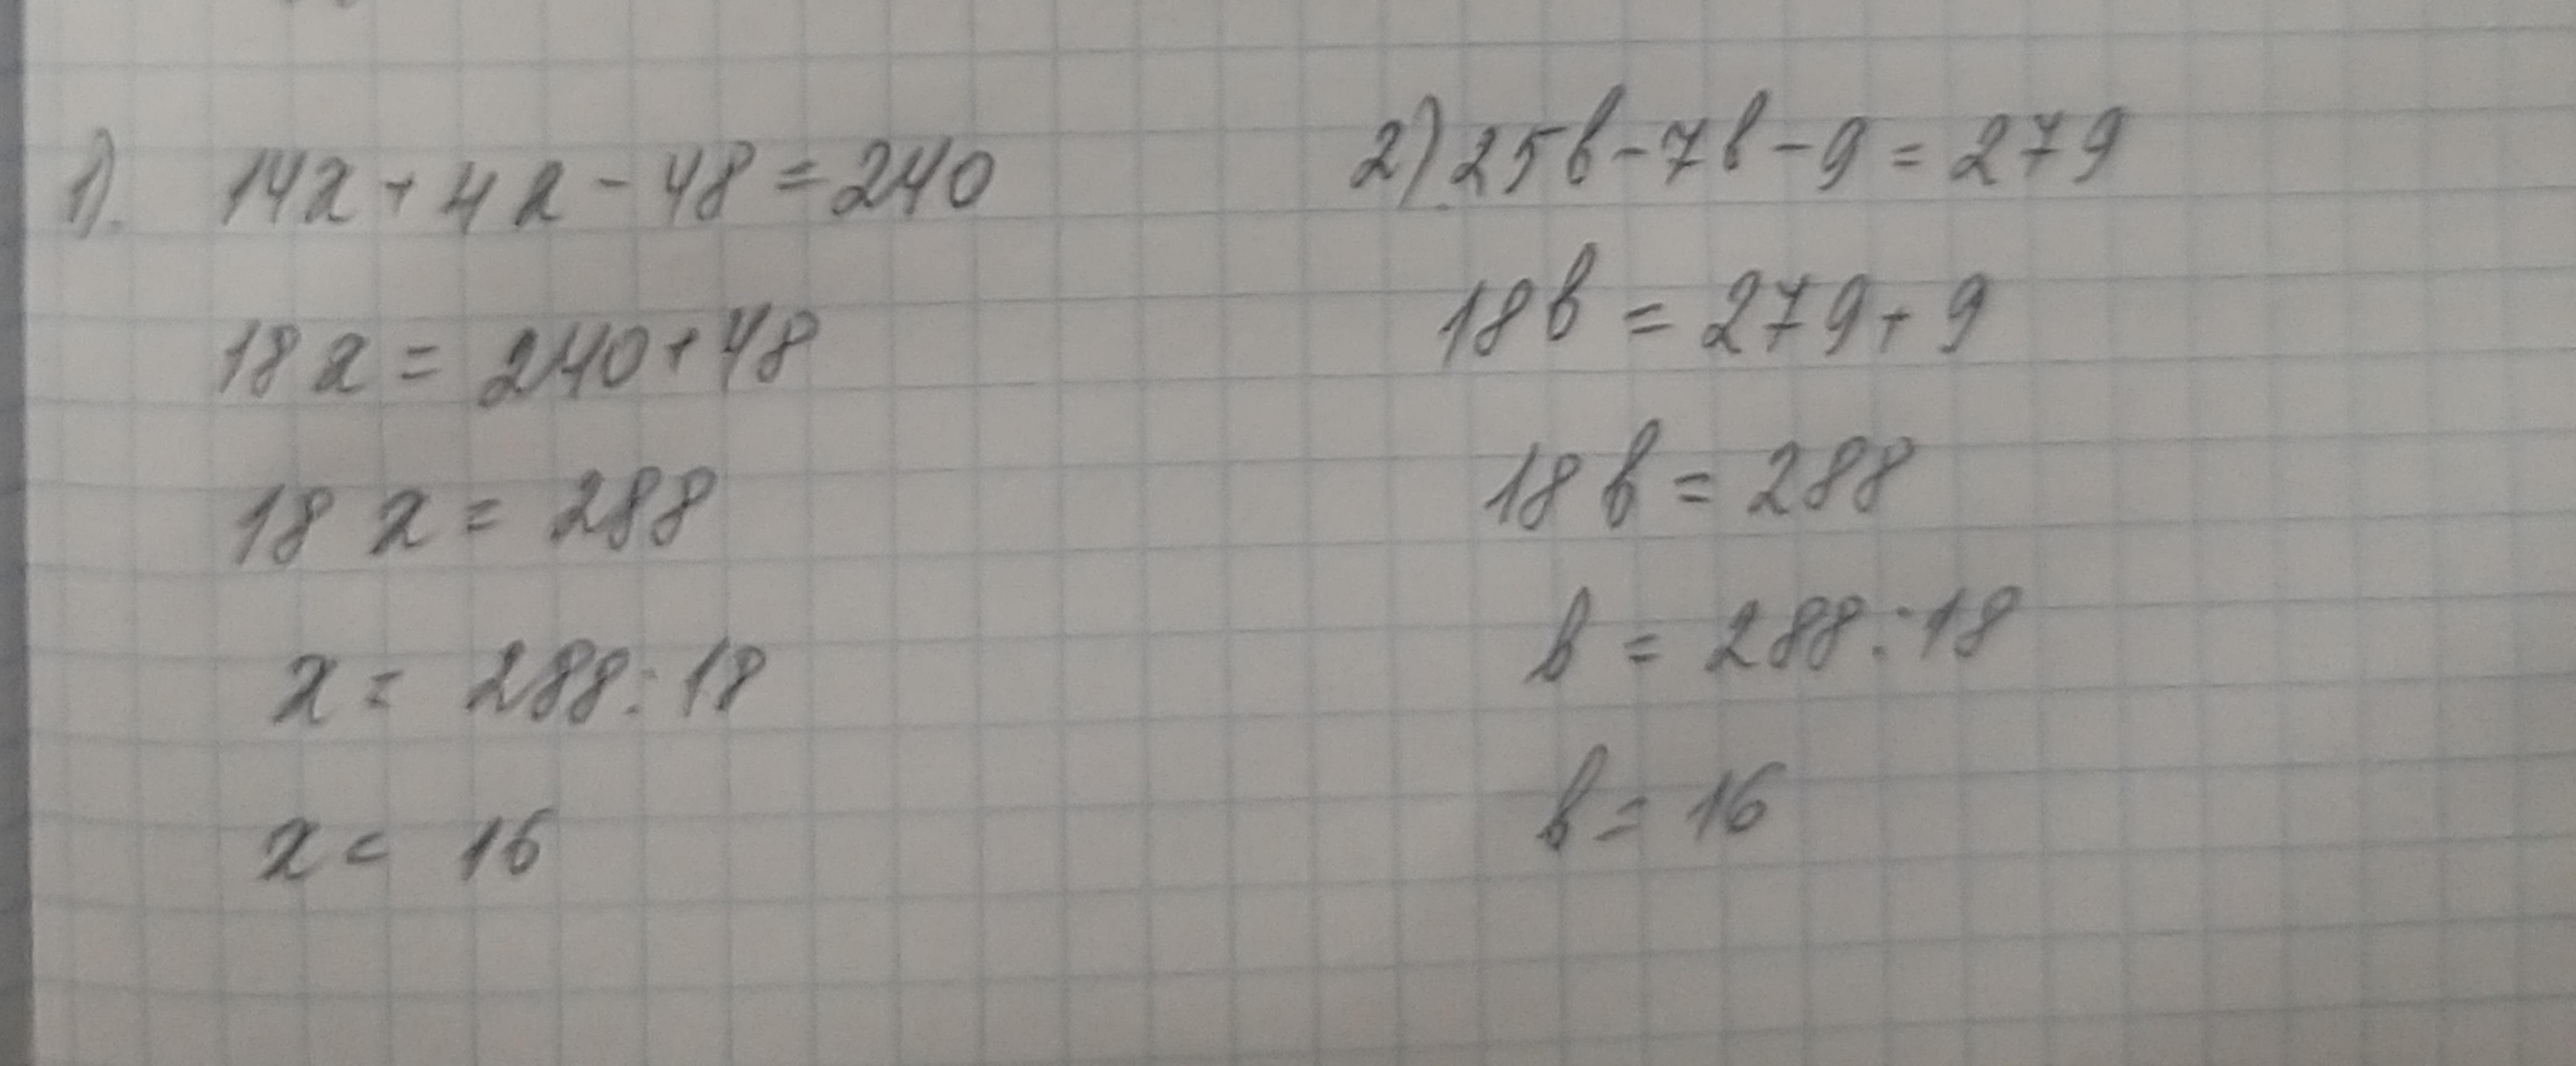 1). 14x + 4x - 48 = 240
18x = 240 + 48
18x = 288
x = 288 : 18
x = 16
2) 25b - 7b - 9 = 279
18b = 279 + 9
18b = 288
b = 288 : 18
b = 16